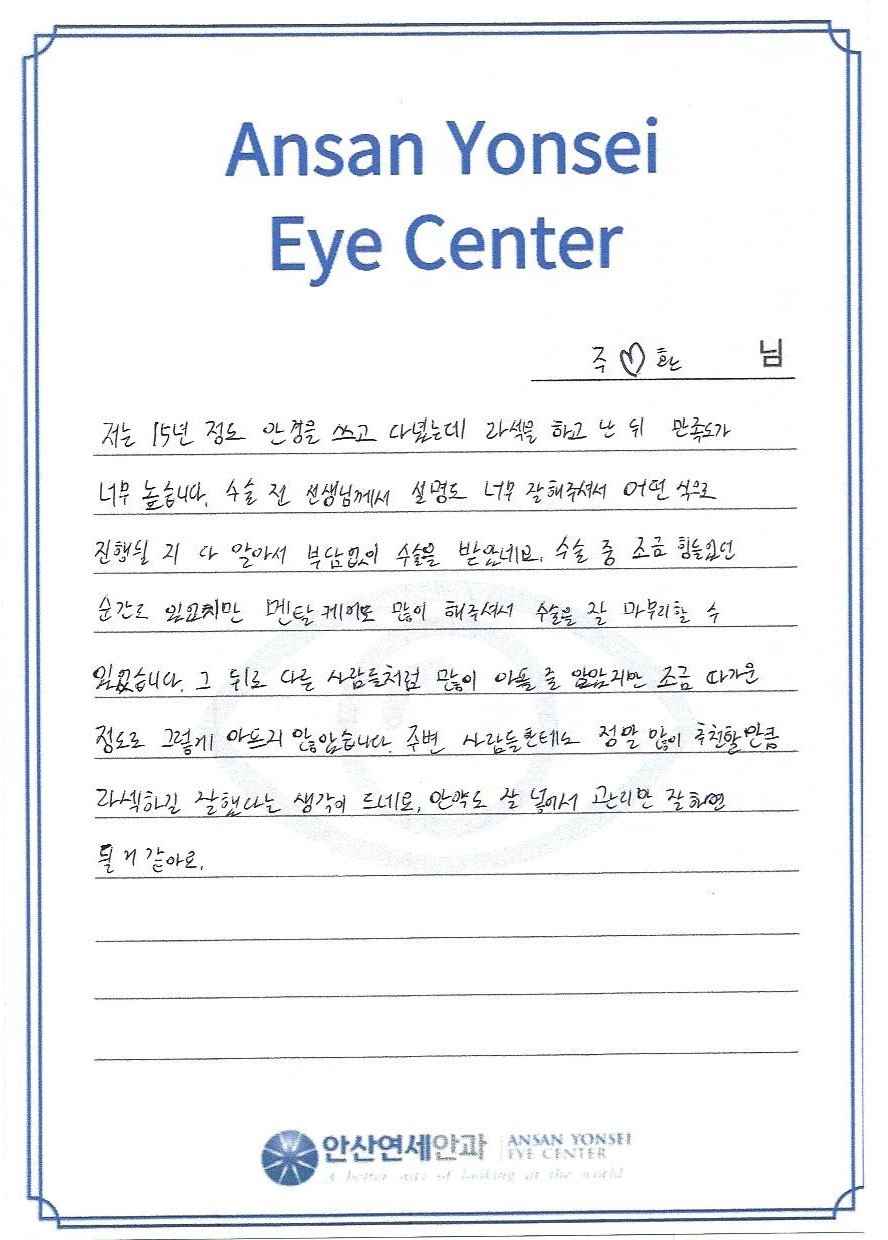 Ansan Yonsei
Eye Center
주♡환 님
저는 15년 정도 안경을 쓰고 다녔는데 라섹을 하고 난 뒤 만족도가
너무 높습니다. 수술 전 선생님께서 설명도 너무 잘해주셔서 어떤 식으로
진행될 지 다 알아서 부담없이 수술을 받았네요. 수술 중 조금 힘들었던
순간도 있었지만 멘탈케어도 많이 해주셔서 수술을 잘 마무리할 수
있었습니다. 그 뒤로 다른 사람들처럼 많이 아플 줄 알았지만 조금 따가운
정도로 그렇게 아프지 않았습니다. 주변 사람들한테도 정말 많이 추천할만큼
라섹하길 잘했다는 생각이 드네요. 안약도 잘 넣어서 관리만 잘하면
될 거 같아요.
안산연세안과 ANSAN YONSEI
EYE CENTER
A better way of looking at the world